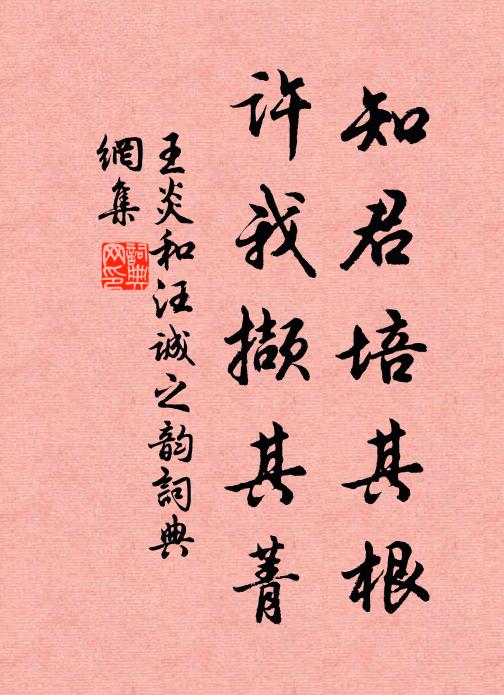 知君培其根
许我撷其菁
王炎和汪诚之韵詞典
網集
詞典网印